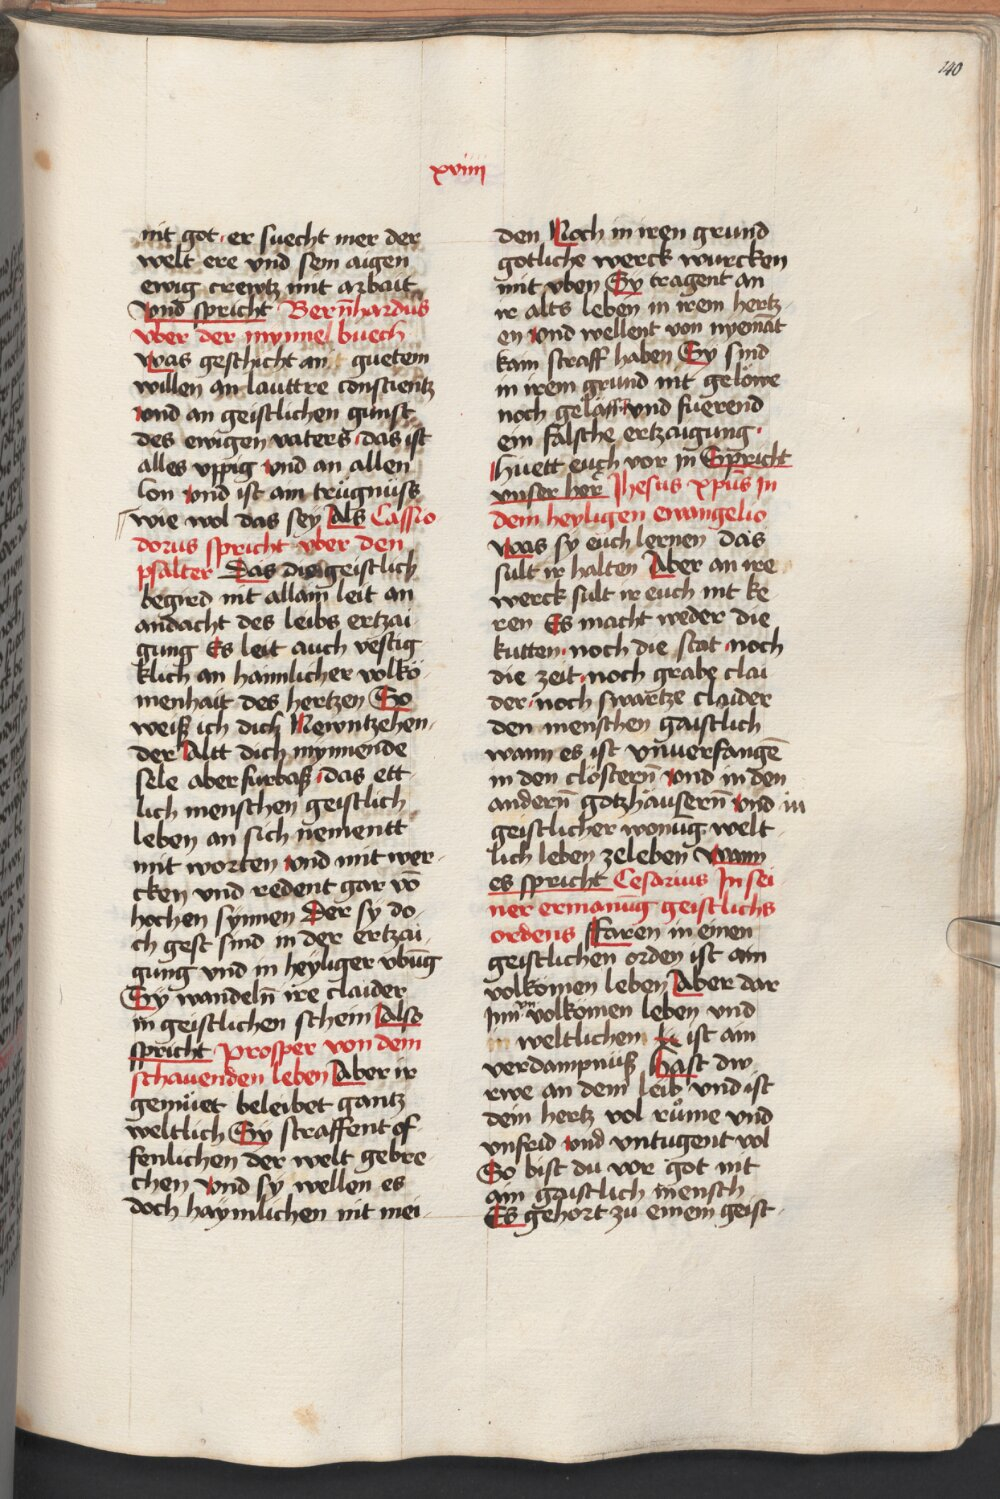 140
xviiii
nit got · er suecht mer der
welt ere vnd sein aigen
ewig crewtz mit arbait
vnd spricht · Bern̄hardus
vber der mynne buech
Was geschicht an guetem
willen an lauttre conscientz
vnd an geistlichen gunst
des ewigen vaters · das ist
alles vppig vnd an allen
lon vnd ist ain trügnüss
wie wol das sey Als Cassio
dorus spricht vber den
psalter Das die geistlich
begird nit allain leit an
andacht des leibs ertzai
gung Es leit auch vestig
klich an haimlicher volkō
menhait des hertzen So
weiß ich dich Newntzehen
der Altt dich mynnende
sele aber furbaß · das ett
lich menschen geistlich
leben an sich nementt
mit worten vnd mit wer
cken vnd redent gar vō
hochen synnen Der sy do
ch gest sind in der ertzai
gung vnd in heyliger vbūg
Sy wandeln̄ ire claider
in geistlichen schein Also
spricht · Prosper von dem
schauenden leben Aber ir
gemüet beleibet gantz
weltlich Sy straffent of
fenlichen der welt gebre
chen vnd sy wellen es
doch haymlichen nit mei
den Noch in iren grund
gotliche werck wurcken
mit vben Sy tragent an
ir alts leben in irem hertz
en vnd wellent von nyemāt
kain straff haben Sy sind
in irem grund nit gelöwe
noch vnd fuerend
ein falsche ertzaigung ·
huett euch vor in Spricht
vnser her Jhesus xpūs Jn
dem heyligen ewangelio
Was sy euch lernen das
sult ir halten Aber an ire
werck sult ir euch nit ke
ren Es macht weder die
kutten · noch die stat · noch
die zeit · noch grabe clai
der · noch swartze claider
den menschen gaistlich
wann es ist vnuerfangē
in den clöstern̄ vnd in den
andern̄ gotzhäusern̄ vnd in
geistlicher wonūg welt
lich leben zeleben Wann
es spricht Cesarius Jn sei
ner ermanūg geistlichs
ordens Faren in einen
geistlichen orden ist ain
volkomen leben Aber dar
Jnn volkomen leben vnd
weltlichen ist ain
verdampnüß Hast dw
rwe an dem leib vnd ist
dein hertz vol růme vnd
vnfrid vnd vntugent vol
So bist du vor got nit
ain geistlich mensch
Es gehort zu einem geist